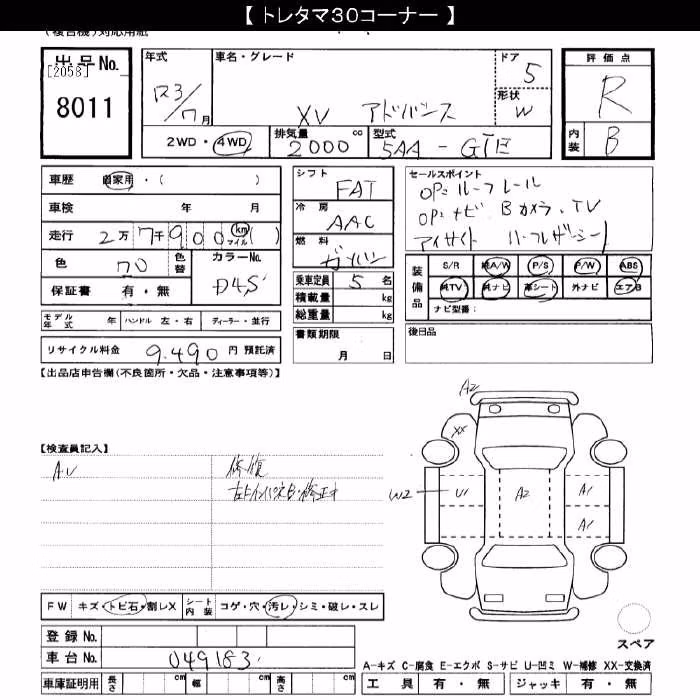 【 トレタマ３０コーナー 】
(複合機)対応用紙
出品No.
[2058]
8011
年式
R3/7月
車名・グレード
XV アドバンス
ドア
5
形状
W
2WD・4WD
排気量 cc
2000
型式
5AA - GTE
評価点
R
内装
B
車歴 自家用・( )
車検 年 月
走行 2万7千900 (km マイル)( )
色
色替
カラーNo.
D4S
保証書 有・無
モデル年式 年 ハンドル 左・右 ディーラー・並行
リサイクル料金 9,490 円 預託済
シフト
FAT
冷房
AAC
燃料
ガソリン
乗車定員 5 名
積載量 kg
総重量 kg
書類期限
月 日
セールスポイント
OP:ルーフレール
OP:ナビ Bカメラ、TV
アイサイト ハーフレザーシート
装備品
S/R 純A/W P/S P/W ABS
純TV 純ナビ 革シート 外ナビ エアB
ナビ型番:
後日品
【出品店申告欄(不良箇所・欠品・注意事項等)】
【検査員記入】
AU
修復
A2
XX
W2
U1
A2
A1
A1
FW キズ・トビ石・割レX
シート内装 コゲ・穴・汚レ・シミ・破レ・スレ
登録 No.
車台 No. 049183
車庫証明用 長さ cm 幅 cm 高さ cm
スペア
A-キズ C-腐食 E-エクボ S-サビ U-凹ミ W-補修 XX-交換済
工具 有・無 ジャッキ 有・無